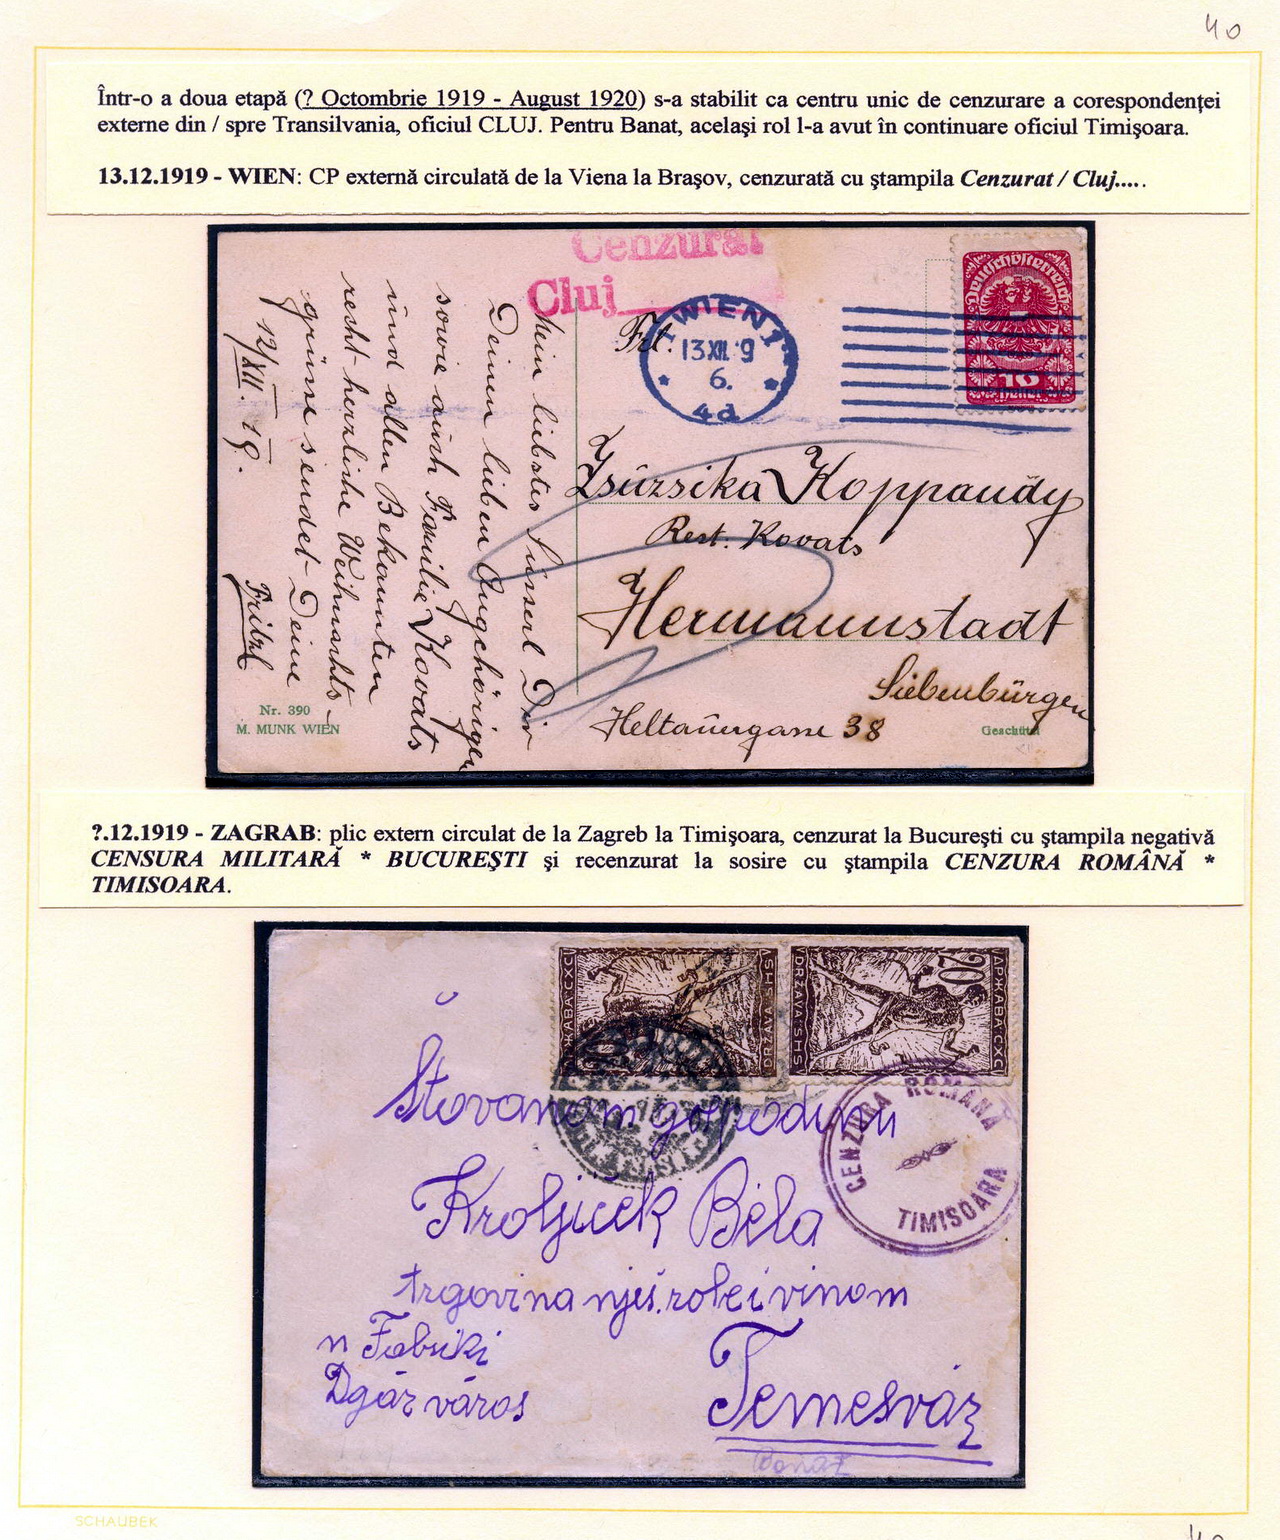 40
Într-o a doua etapă (? Octombrie 1919 - August 1920) s-a stabilit ca centru unic de cenzurare a corespondenţei
externe din / spre Transilvania, oficiul CLUJ. Pentru Banat, acelaşi rol l-a avut în continuare oficiul Timişoara.
13.12.1919 - WIEN: CP externă circulată de la Viena la Braşov, cenzurată cu ştampila Cenzurat / Cluj.....
Cenzurat
Cluj
Mein liebstes Dir
Deinen lieben Angehörigen
sowie auch Familie Kovats
und allen Bekannten
recht herzliche Weihnachts-
grüsse sendet Deine
12/XII. 19.
Nr. 390
M. MUNK WIEN
Frl.
1 WIEN 1
13 XII 9
6.
* *
4d
Deutschösterreich
10
Heller
Zsúzsika Koppandy
Rest. Kovats
Hermannstadt
Siebenbürgen
Heltauergasse 38
Geschützt
?.12.1919 - ZAGRAB: plic extern circulat de la Zagreb la Timişoara, cenzurat la Bucureşti cu ştampila negativă
CENSURA MILITARĂ * BUCUREŞTI şi recenzurat la sosire cu ştampila CENZURA ROMÂNĂ *
TIMISOARA.
DRŽAVA SHS
ДРЖАВА СХС
20
DRŽAVA SHS
CENZURA ROMÂNĂ
TIMISOARA
Štovanom gospodinu
Kroljicek Béla
trgovina vinom
n Fabriki
Dgár város
Temesvár
Banat
SCHAUBEK
40